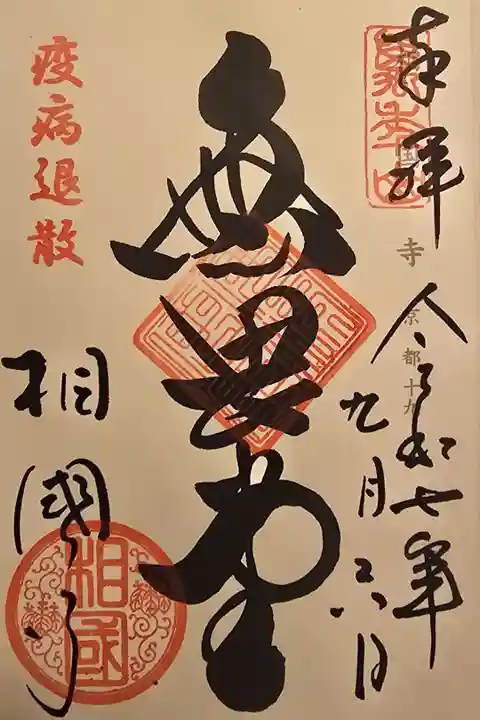 奉拝
萬年山
寺 京都十九
令和七年
九月二六日
無畏堂
疫病退散
相國寺
相国